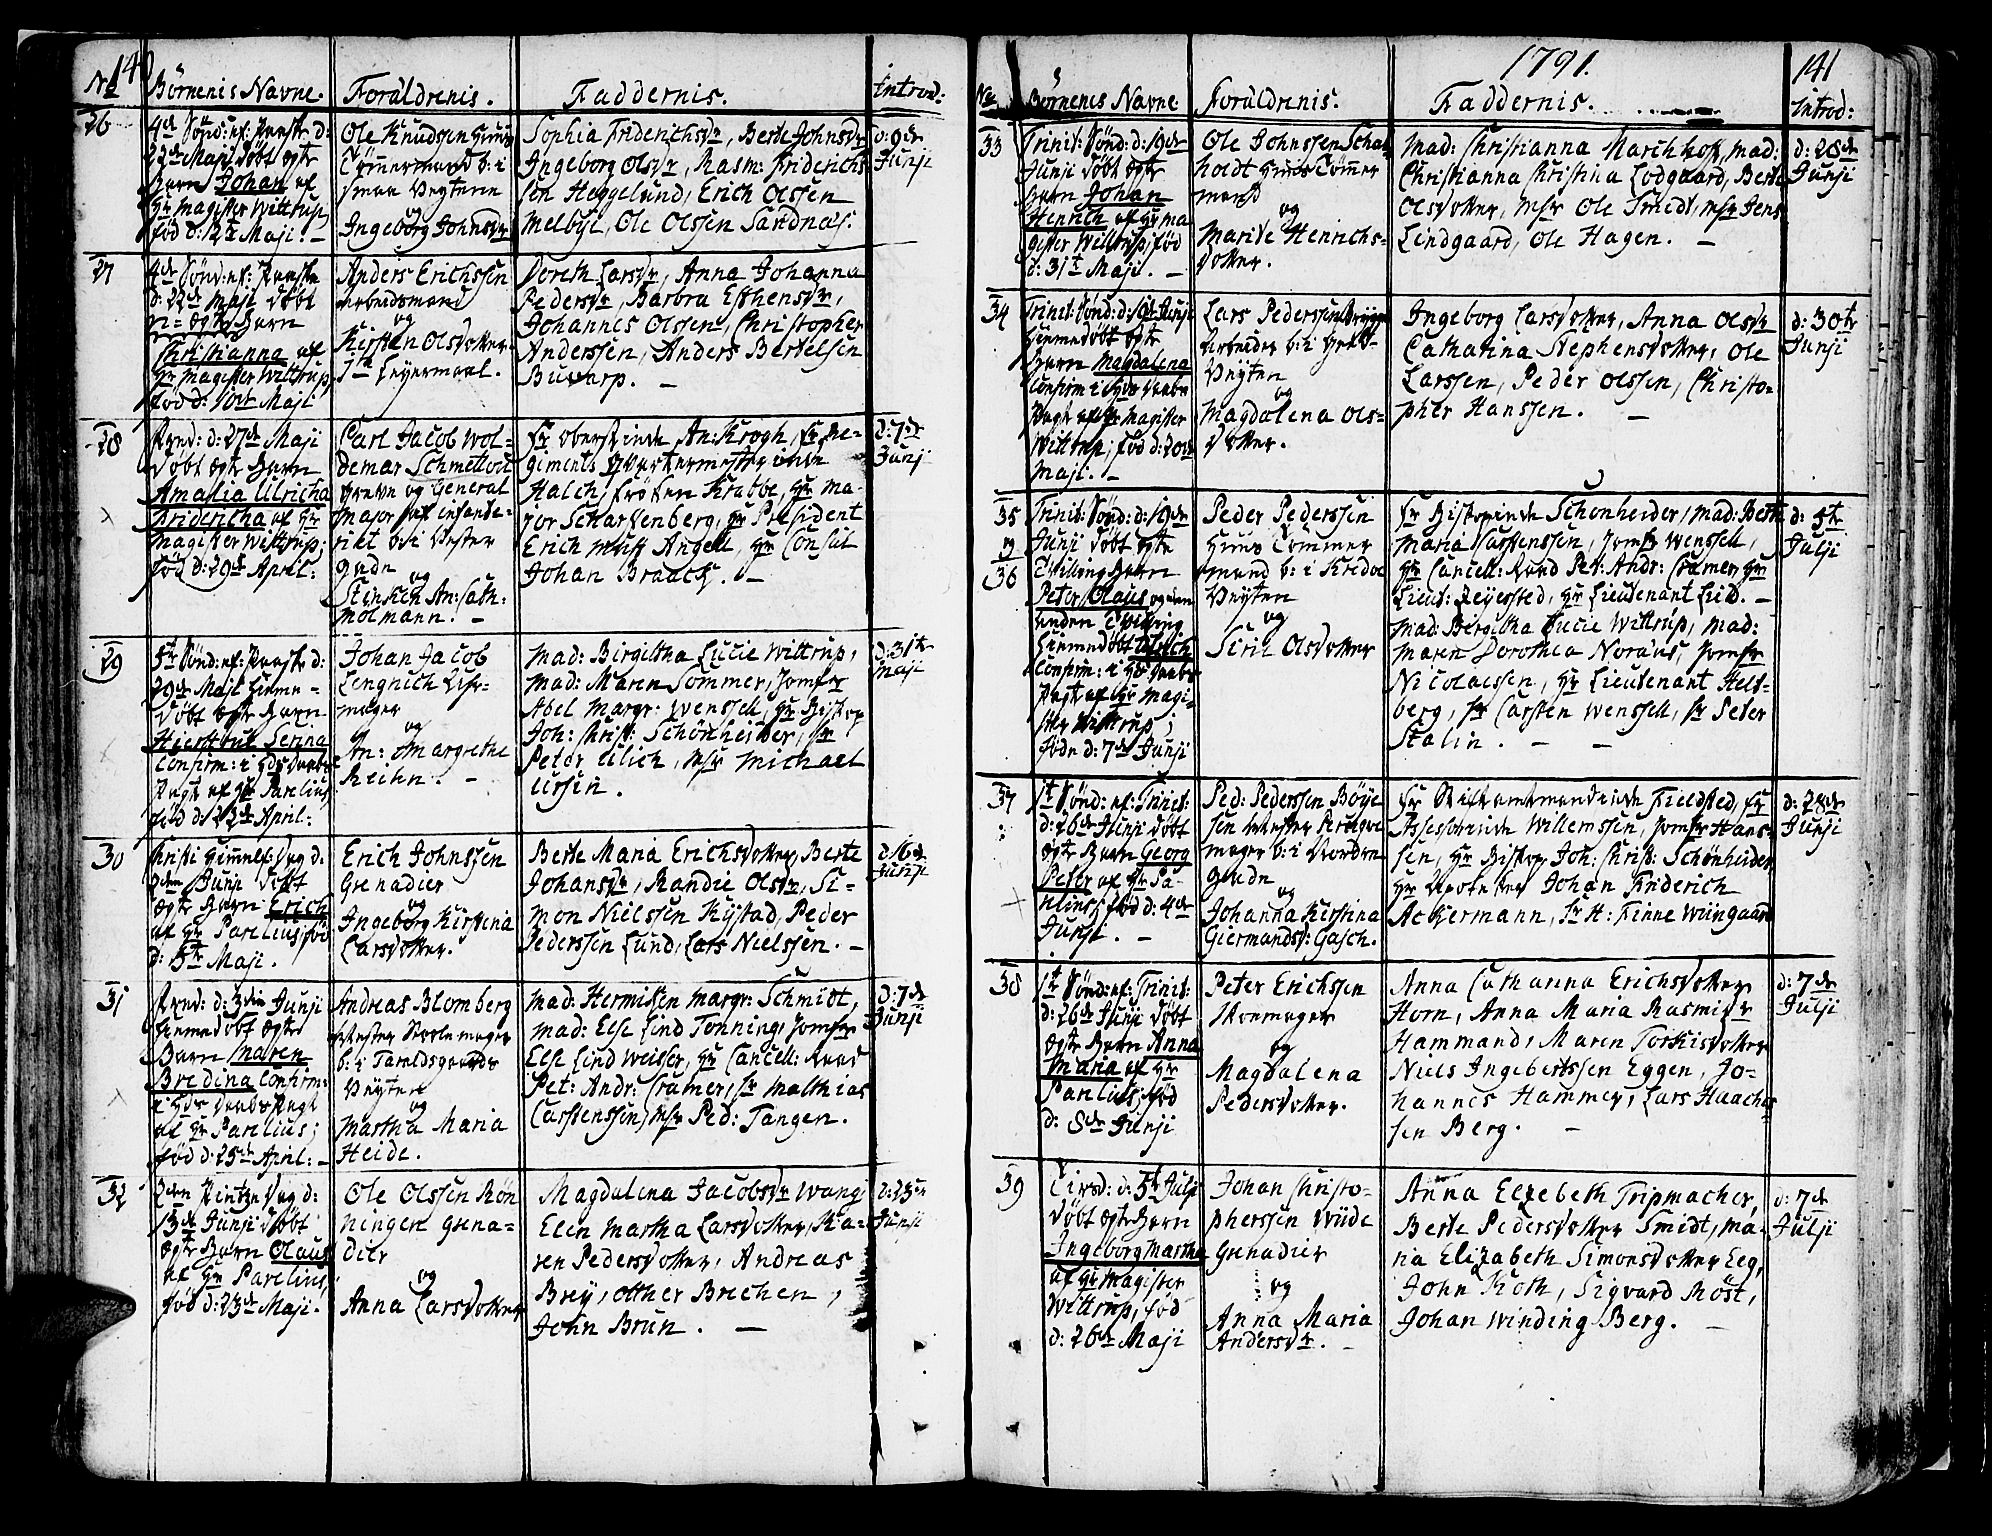 140
No
Börnenis Navne.
Foräldrenis.
Faddernis.
Introd:
26
4de Sönd: ef: Paaske d:
22de Maji döbt ægte
Barn Johan af
Hr Magister Wittrup,
fød d: 12te Maji. –
Ole Knudssen Huus
Tömmermand b: i
smaa Veyterne
Ingeborg Johnsdr
Sophia Friderichsdr, Berte Johnsdr
Ingeborg Olsdr, Rasm: Friderichs
sön Heggelund, Erich Olssen
Melbye, Ole Olssen Sandnæs.
d: 9de
Junji
27
4de Sönd: ef: Paaske
d: 22de Maji döbt
u-ægte Barn
Christianna af
Hr Magister Wittrup,
fød d: 10de Maji
Anders Erichssen
Arbeidsmand
og
Kirsten Olsdotter
1te Leyermaal.
Doreth Larsdr, Anna Johanna
Pedersdr, Barbra Esthensdr,
Johannes Olssen, Christopher
Anderssen, Anders Bertelsen
Buvarp. –
28
Fred: d: 27de Maji
döbt ægte Barn
Amalia Ulricha
Fridericha af Hr
Magister Wittrup;
fød d: 29de April:
Carl Jacob Wol-
demar Schmettou
Greve og General
Major af Infante-
riet b: i Vester
Gade
og
Stinken An: Cath:
Molmann. –
Fr Oberstinde An: Krogh, Fr Re-
giments Qvartermesterinde
Halch, Fröken Krabbe, Hr Ma-
jor Scharffenberg, Hr President
Erich Must Angell, Hr Consul
Johan Braack. –
d: 7de
Junj
29
5te Sönd: ef: Paaske d:
29de Maji hieme-
döbt ægte Barn
Hierttrut Serina
Confirm: i Hds Daabs
Pagt af Hr Parelius,
fød d: 22de April:
Johan Jacob
Lengnich Uhr-
mager
og
An: Margrethe
Reihn. –
Mad: Birgitha Lucie Wittrup,
Mad: Maren Sommer, Jomfr
Abel Margr: Wenssell, Hr Biskop
Joh: Christ: Schönheider, Sr
Peter Ulich, Msr Michael
Ursin.
d: 31te
Maji
30
Christi Himmelf: Dag d:
2den Junji döbt
ægte Barn Erich
af Hr Parelius, fød
d: 5te Maji.
Erich Johnssen
Grenadier
og
Ingeborg Kirstina
Larsdotter.
Berte Maria Erichsdotter, Berte
Johansdr, Randie Olsdr, Si-
mon Nielssen Rystad, Peder
Pederssen Lund, Lars Nielssen. –
d: 16de
Junji
31
Fred: d: 3die Junji
hiemedöbt ægte
Barn Maren
Bredina Confirm:
i Hds Daabs Pagt
af Hr Parelius;
fød d: 25de April: –
Andreas Blomberg
Mester Stolemager
b: i Taraldsgaards
Veyten
og
Martha Maria
Heide.
Mad: Hermissen Margr: Schmidt,
Mad: Else Lind Tonning, Jomfr
Else Lind Weisser, Hr Cancell: Raad
Pet: Andr: Cramer, Sr Matthias
Carstenssen, Msr Ped: Tangen.
d: 7de
Junji
32
2den Pintze Dag d:
13de Junji döbt
ægte Barn Olaus
af Hr Parelius,
fød d: 23de Maji.
Ole Olssen Rön
ningen Grena-
dier
og
Anna Larsdotter
Magdalena Jacobsdr Wang,
Elen Martha Larsdotter, Ma-
ren Pedersdotter, Andreas
Brey, Otther Brechen,
John Brun. –
d: 23de
Junji
1791.
141
No
Börnenes Navne
Foräldrenis.
Faddernis.
Introd:
33
Trinit: Sönd: d: 19de
Junji döbt ægte
Barn Johan
Henrich af Hr Ma
gister Wittrup, fød
d: 31te Maji. –
Ole Johnssen Schal
holdt Huus Tömmer
mand
og
Marite Henrichs-
dotter.
Mad: Christianna Marchhoss, Mad:
Christianna Christina Lodgaard, Berte
Olsdotter, Msr Ole Smidt, Msr Jens
Lindgaard, Ole Hagen. –
d: 28de
Junji
34
Trinit: Sönd: d: 19de Junji
hiemedöbt ægte
Barn Magdalena
Confirm: i Hds Daabs
Pagt af Hr Magister
Wittrup, fød d: 20de
Maji. –
Lars Pederssen Brygge
Arbeider b: i
Veyten
og
Magdalena Ols-
dotter.
Ingeborg Larsdotter, Anna Olsdr
Catharina Stephensdotter, Ole
Larssen, Peder Olssen, Christo-
pher Hanssen. –
d: 30te
Junji
35
og
36
Trinit: Sönd: d: 19de
Junji döbt ægte
Tvilling Barn
Peter Olaus og den
anden Tvilling
hiemedöbt Ulrich
Confirm: i Hds Daabs
Pagt af Hr Magi-
ster Wittrup;
fødde d: 7de Junji
Peder Pederssen
Huus Tömmer
mand b: i Kredoe
Veyten
og
Siril Olsdotter
Fr Biskopinde Schönheider, Mad: Berth
Maria Carstenssen, Jomfr Wenssell,
Hr Cancell: Raad Pet: Andr: Cramer, Hr
Lieut: Reyersted, Hr Lieutenant Lied. –
Mad: Bergitha Lucie Wittrup, Mad:
Maren Dorothea Noraus, Jomfr
Nicolaissen, Hr Lieutenant Helt-
berg, Sr Carsten Wenssell, Sr Peter
Stalin. – –
d: 5te
Julji
37
1te Sönd: ef: Trinit:
d: 26de Junji döbt
ægte Barn Georg
Peter af Hr Pa-
relius; fød d: 4de
Junji. –
Ped: Pederssen Böye
sen Mester Peruqve
mager b: i Norden
Gade
og
Johanna Kirstina
Giermandsd: Gasch.
Fr Stiftamtmandinde Fieldsted, Fr
Assessorinde Willemssen, Jomfr Hans-
sen, Hr Biskop Joh: Christ: Schönheider
Hr Apoteker Johan Friderich
Ackermann, Sr H: Finne Wiingaard
d: 28de
Junji
38
1te Sönd: ef: Trinit:
d: 26de Junji döbt
ægte Barn Anna
Maria af Hr
Parelius, fød
d: 8de Junji
Peter Erichssen
Skoemager
og
Magdalena
Pedersdotter.
Anna Catharina Erichsdotter
Horn, Anna Maria Rasmisdr
Hammand, Maren Torkisdotter
Niels Ingebertssen Eggen, Jo-
hannes Hammer, Lars Haachos
sen Berg. –
d: 7de
Julji
39
Tirsd: d: 5te Julji
döbt ægte Barn
Ingeborg Martha
af Hr Magister
Wittrup, fød
d: 26de Maji
Johan Christo-
pherssen Wiide
Grenadier
og
Anna Maria
Andersdr. –
Anna Elzebeth Tripmacher,
Berte Pedersdotter Smidt, Ma-
ria Elizabeth Simonsdotter Eeg,
John Roth, Sigvard Möst,
Johan Winding Berg. –
d: 7de
Julji